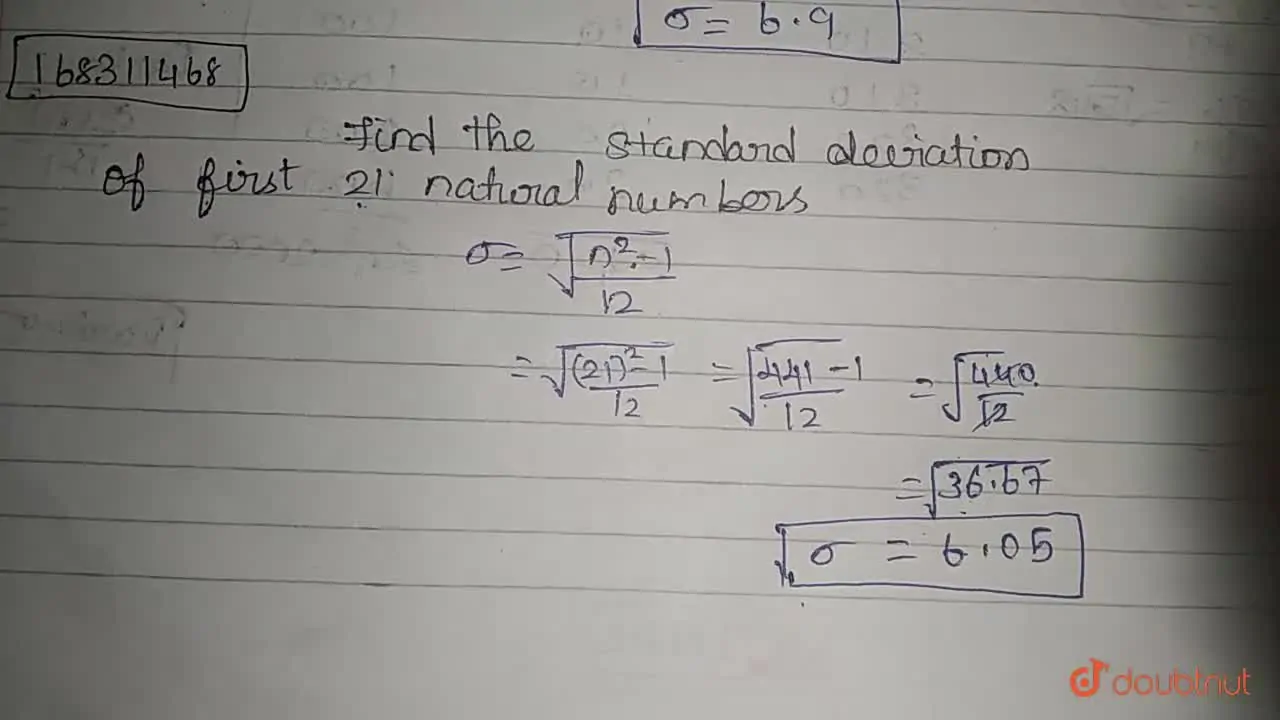 σ = 6.9
168311468
Find the standard deviation
of first 21 natural numbers
σ = √(n² - 1)/12
= √((21)² - 1)/12 = √(441 - 1)/12 = √440/12
= √36.67
σ = 6.05
doubtnut